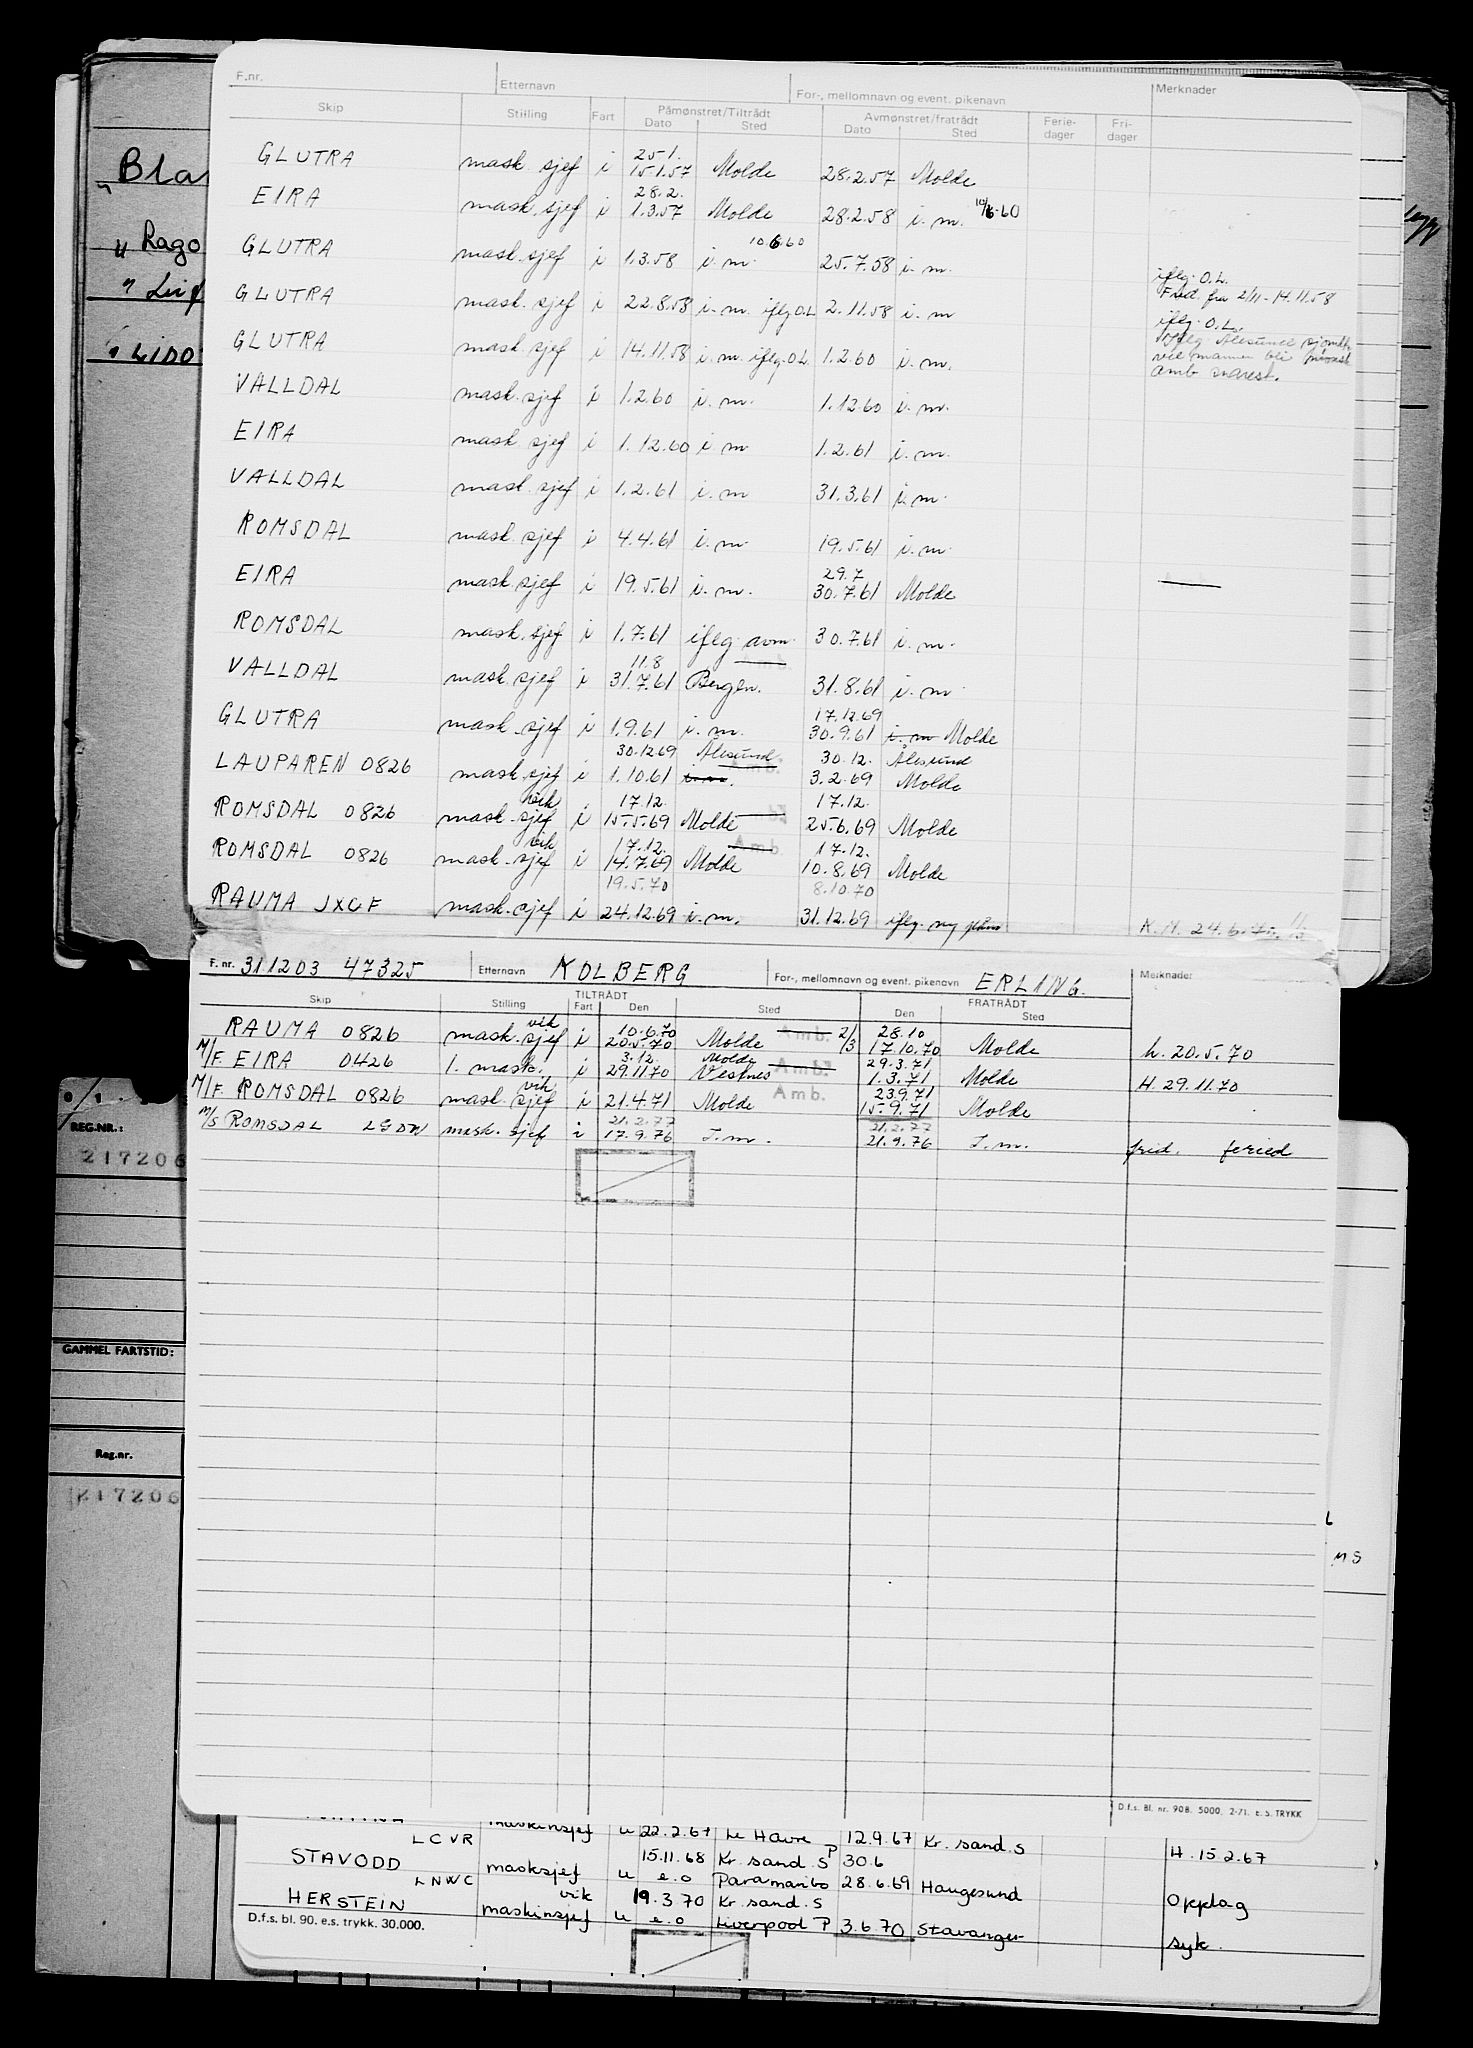 F.nr. Etternavn For-, mellomnavn og event. pikenavn Merknader
Skip Stilling Fart Påmønstret/Tiltrådt Dato Sted Avmønstret/fratrådt Dato Sted Ferie-dager Fri-dager
25.1.
GLUTRA mask. sjef i 15.1.57 Molde 28.2.57 Molde
28.2.
EIRA mask. sjef i 1.3.57 Molde 28.2.58 i.m. 10/6.60
10.6.60
GLUTRA mask. sjef i 1.3.58 i.m. 25.7.58 i.m.
iflg. O.L.
GLUTRA mask. sjef i 22.8.58 i.m. iflg O.L. 2.11.58 i.m Frid. fra 2/11-14.11.58
iflg. O.L.
GLUTRA mask. sjef i 14.11.58 i.m. iflg. O.L. 1.2.60 i.m. Iflg. Ålesund sjømdk
vil mannen bli
amb snarest.
VALLDAL mask. sjef i 1.2.60 i.m. 1.12.60 i.m.
EIRA mask. sjef i 1.12.60 i.m 1.2.61 i.m.
VALLDAL mask. sjef i 1.2.61 i.m 31.3.61 i.m.
ROMSDAL mask. sjef i 4.4.61 i.m. 19.5.61 i.m.
29.7
EIRA mask. sjef i 19.5.61 i.m. 30.7.61 Molde
ROMSDAL mask. sjef i 1.7.61 iflg. avm. 30.7.61 i.m.
11.8
VALLDAL mask. sjef i 31.7.61 Bergen. 31.8.61 i.m.
17.12.69
GLUTRA mask. sjef i 1.9.61 i.m. 30.9.61 i.m Molde
30.12.69 Ålesund 30.12. Ålesund
LAUPAREN 0826 mask. sjef i 1.10.61 i.m. Amb. 3.2.69 Molde
vik 17.12. 17.12.
ROMSDAL 0826 mask. sjef i 15.5.69 Molde 25.6.69 Molde
vik 17.12. Amb. 17.12.
ROMSDAL 0826 mask. sjef i 14.7.69 Molde 10.8.69 Molde
19.5.70 8.10.70
RAUMA JXCF mask. sjef i 24.12.69 i.m. 31.12.69 iflg. ny påm K.M. 24.6.70.
F. nr. 311203 47325 Etternavn KOLBERG For-, mellomnavn og event. pikenavn ERLING. Merknader
Skip Stilling TILTRÅDT Fart Den Sted FRATRÅDT Den Sted
vik 10.6.70 Amb. 2/3 28.10
RAUMA 0826 mask. sjef i 20.5.70 Molde 17.10.70 Molde h. 20.5.70
3.12. Molde 29.3.71
M/F. EIRA 0426 1. mask. i 29.11.70 Vestnes Amb. 1.3.71 Molde H 29.11.70
vik Amb. 23.9.71
M/F. ROMSDAL 0826 mask. sjef i 21.4.71 Molde 15.9.71 Molde
21.2.77 21.2.77
M/S ROMSDAL LGDW mask. sjef i 17.9.76 I.m. 21.9.76 I.m. frid. feried
D.f.s. Bl. nr. 90B. 5000. 2-71. E.S. TRYKK
LCVR maskinsjef u 22.2.67 Le Havre 12.9.67 Kr. sand. S H. 15.2.67
15.11.68 Kr. sand. S P 30.6
STAVODD LNWC masksjef u e.o Paramaribo 28.6.69 Haugesund Opplag
vik 19.3.70 Kr. sand. S
HERSTEIN maskinsjef u e.o Liverpool P 3.6.70 Stavanger syk.
D.f.s. bl. 90. e.s. trykk. 30.000.
Bla
" Rago
" Leif
" LIDO
REG.NR.:
217206
GAMMEL FARTSTID:
Reg.nr.
217206
MS